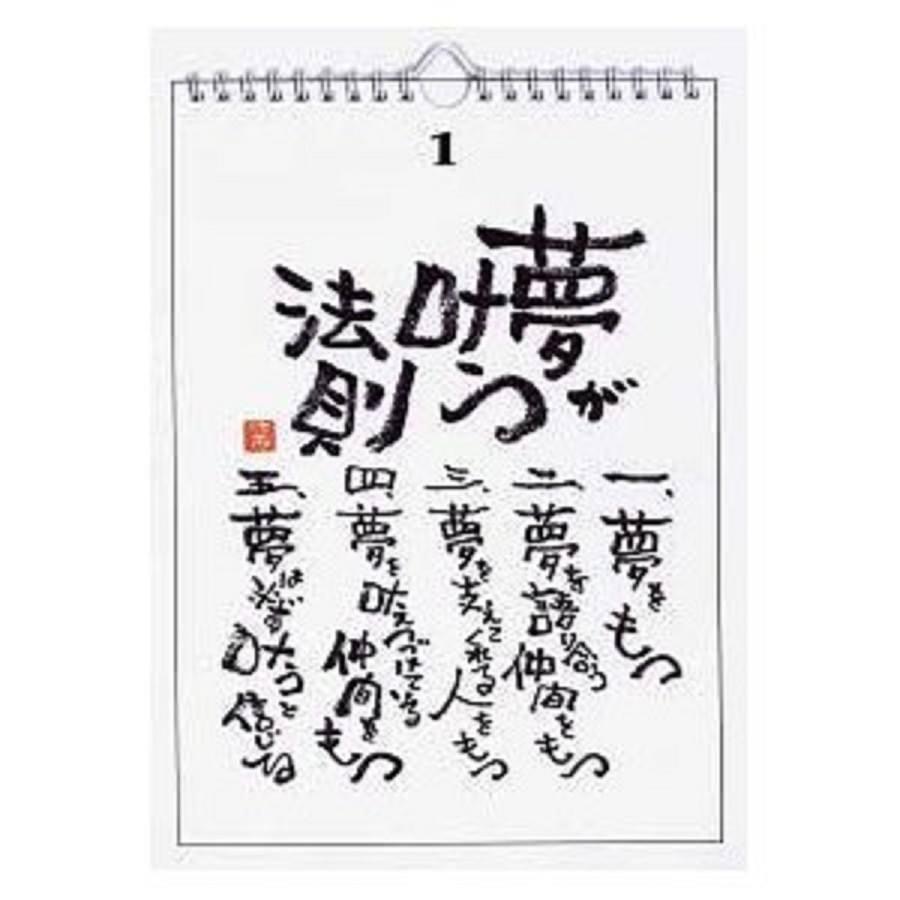 1
夢が
叶う
法則
一、夢をもつ
二、夢を語り合う仲間をもつ
三、夢を支えてくれる人をもつ
四、夢を叶えつづけている仲間をもつ
五、夢は必ず叶うと信じる